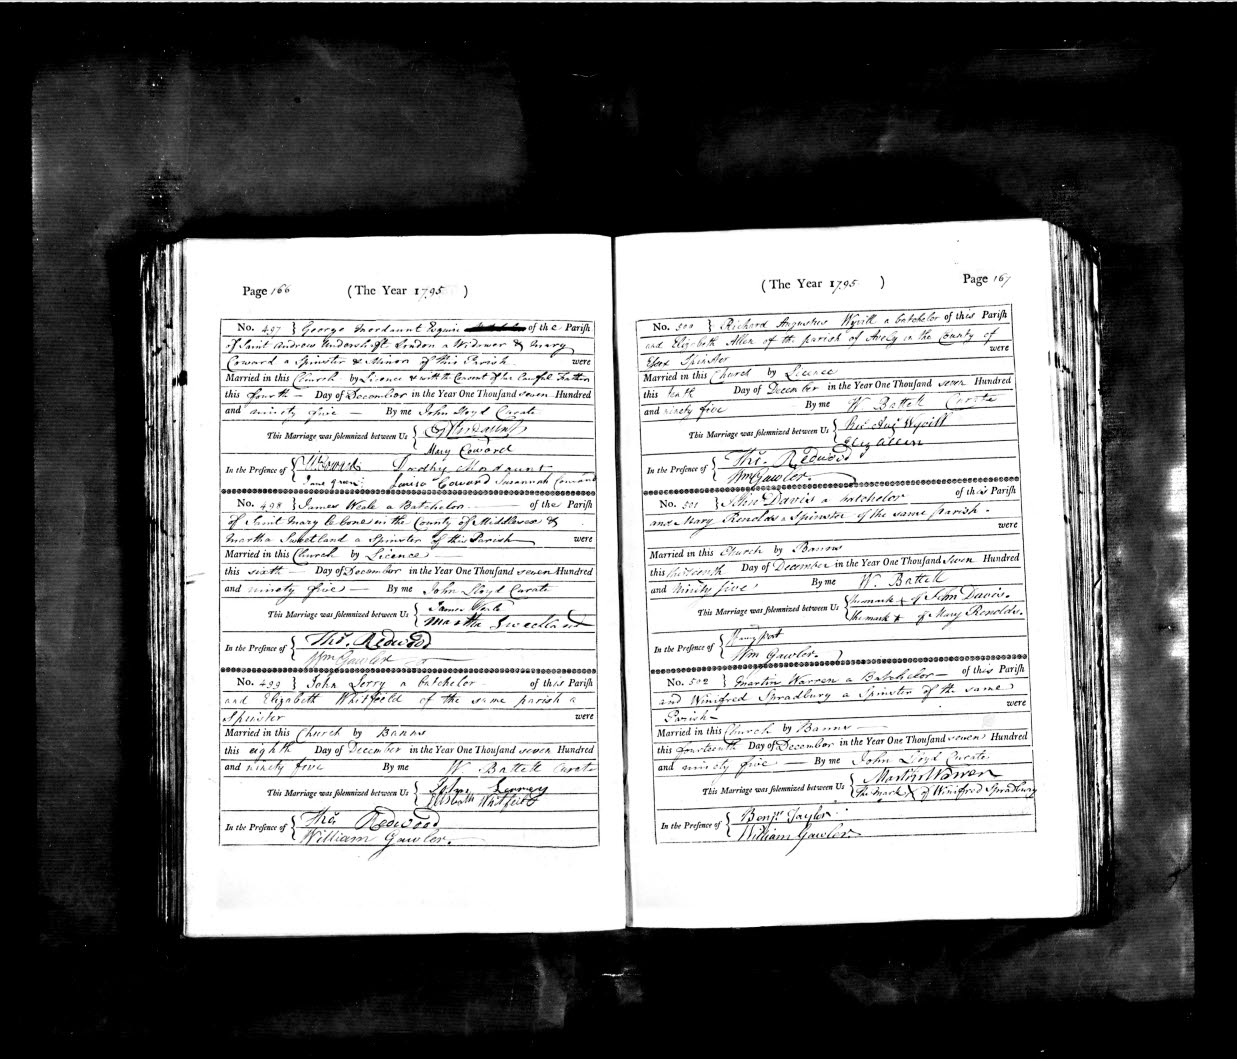 Page 166 (The Year 1795)
No. 497 } George Mordaunt Esquire of the Parish
of Saint Andrew Undershaft London a Widower & Mary
Coward a Spinster & Minor of this Parish were
Married in this Church by Licence & with the Consent of her Lawful Father
this fourth Day of December in the Year One Thousand seven Hundred
and ninety five By me John Lloyd Curate
This Marriage was solemnized between Us {
Mary Coward
In the Presence of { Dorothy Mordaunt
Louisa Coward Susannah Coward
No. 498 } James Weale a Batchelor of the Parish
of Saint Mary le bone in the County of Middlesex &
Martha Sweetland a Spinster of this Parish were
Married in this Church by Licence
this sixth Day of December in the Year One Thousand seven Hundred
and ninety five By me John Lloyd Curate
This Marriage was solemnized between Us { James Weale
Martha Sweetland
In the Presence of { Tho. Redwood
Wm Gawler
No. 499 } John Lerry a batchelor of this Parish
and Elizabeth Whitfield of the same parish a
Spinster were
Married in this Church by Banns
this eighth Day of December in the Year One Thousand seven Hundred
and ninety five By me W. Battell Curate
This Marriage was solemnized between Us { John
Whitfield
In the Presence of { Tho. Redwood
William Gawler.
Page 167 (The Year 1795)
No. 500 } Richard Augustus Wyvill a batchelor of this Parish
and Elizabeth Allen of the parish of Avely in the County of
Essex Spinster were
Married in this Church by Licence
this tenth Day of December in the Year One Thousand seven Hundred
and ninety five By me W. Battell Curate
This Marriage was solemnized between Us { Ric. Aug. Wyvill
Eliz Allen
In the Presence of { Tho. Redwood
Wm Gawler.
No. 501 } John Davis a batchelor of this Parish
and Mary Renolds a Spinster of the same parish.
were
Married in this Church by Banns
this thirteenth Day of December in the Year One Thousand Seven Hundred
and Ninety five By me W. Battell
This Marriage was solemnized between Us { the mark x of John Davis.
the mark x of Mary Renolds.
In the Presence of {
Wm Gawler.
No. 502 } Martin Warren a Batchelor of this Parish
and Winifred Spradbury a Spinster of the same
Parish were
Married in this Church by Banns
this fourteenth Day of December in the Year One Thousand seven Hundred
and ninety five By me John Lloyd Curate
This Marriage was solemnized between Us { Martin Warren
the mark X of Winifred Spradbury
In the Presence of { Benjn Taylor
William Gawler